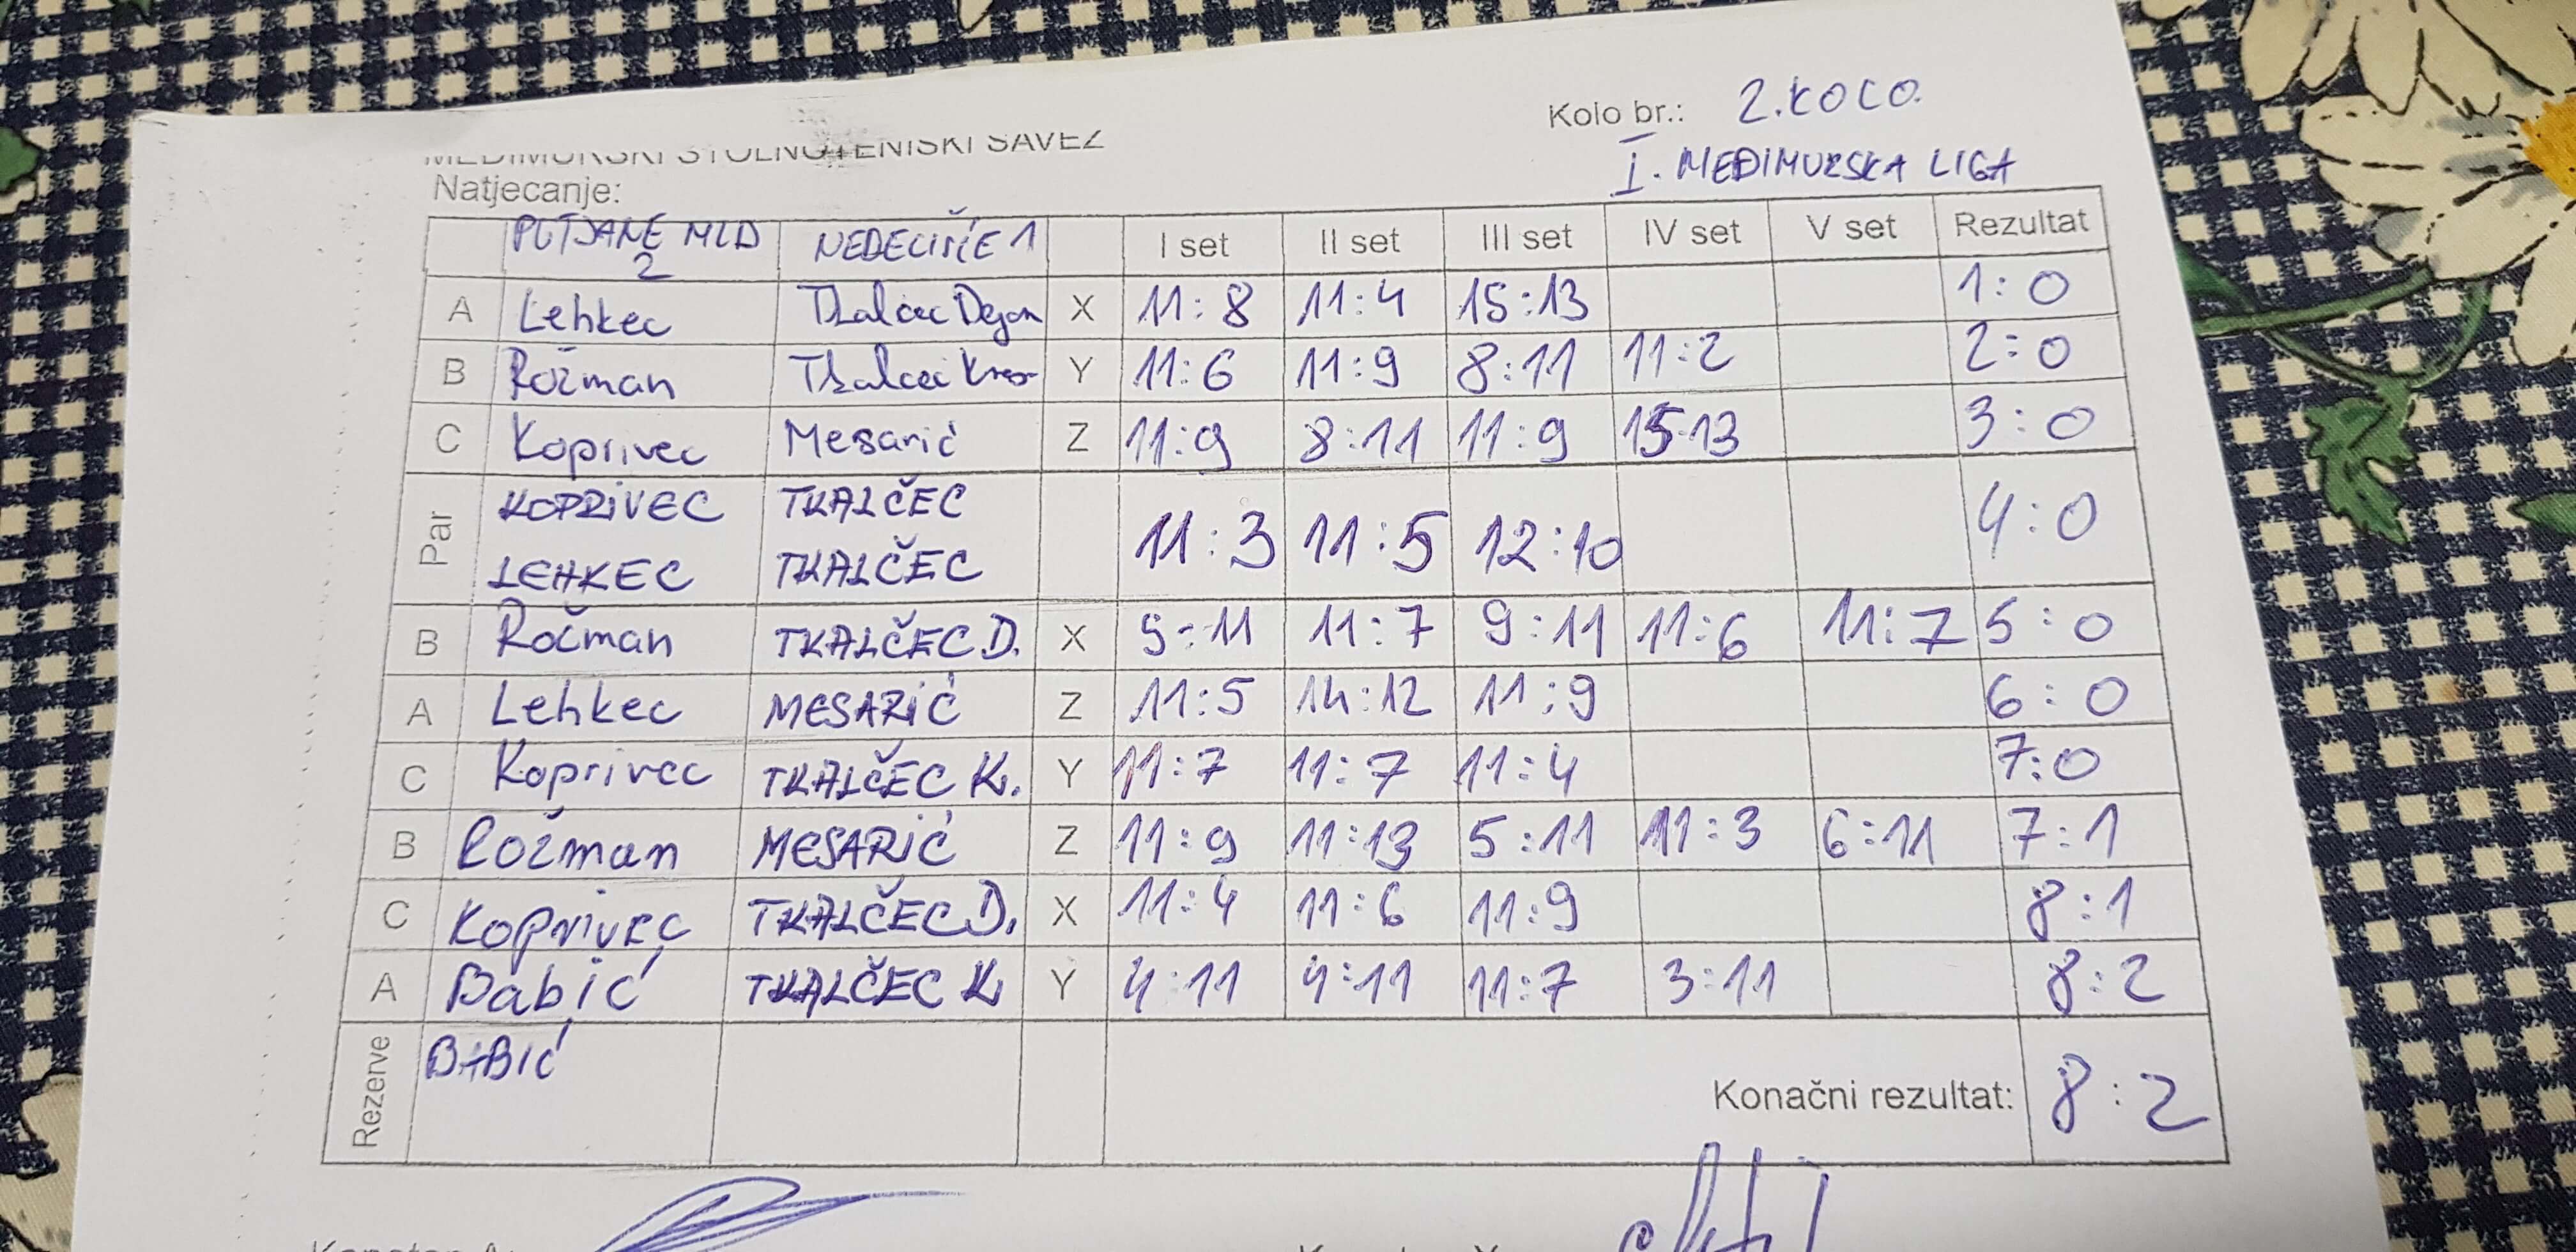 Kolo br.: 2. KOLO.
MEĐIMURSKI STOLNOTENISKI SAVEZ
I. MEĐIMURSKA LIGA
Natjecanje:
PUTJANE MLD 2 NEDELIŠĆE 1 I set II set III set IV set V set Rezultat
A Lehkec Tkalčec Dejan X 11:8 11:4 15:13 1:0
B Rožman Tkalčec Y 11:6 11:9 8:11 11:2 2:0
C Koprivec Mesarić Z 11:9 8:11 11:9 15:13 3:0
Par KOPRIVEC TKALČEC 11:3 11:5 12:10 4:0
LEHKEC TKALČEC
B Rožman TKALČEC D. X 9:11 11:7 9:11 11:6 11:7 5:0
A Lehkec MESARIĆ Z 11:5 14:12 11:9 6:0
C Koprivec TKALČEC K. Y 11:7 11:7 11:4 7:0
B Rožman MESARIĆ Z 11:9 11:13 5:11 11:3 6:11 7:1
C Koprivec TKALČEC D. X 11:4 11:6 11:9 8:1
A Babić TKALČEC K. Y 4:11 4:11 11:7 3:11 8:2
Rezerve BABIĆ
Konačni rezultat: 8:2